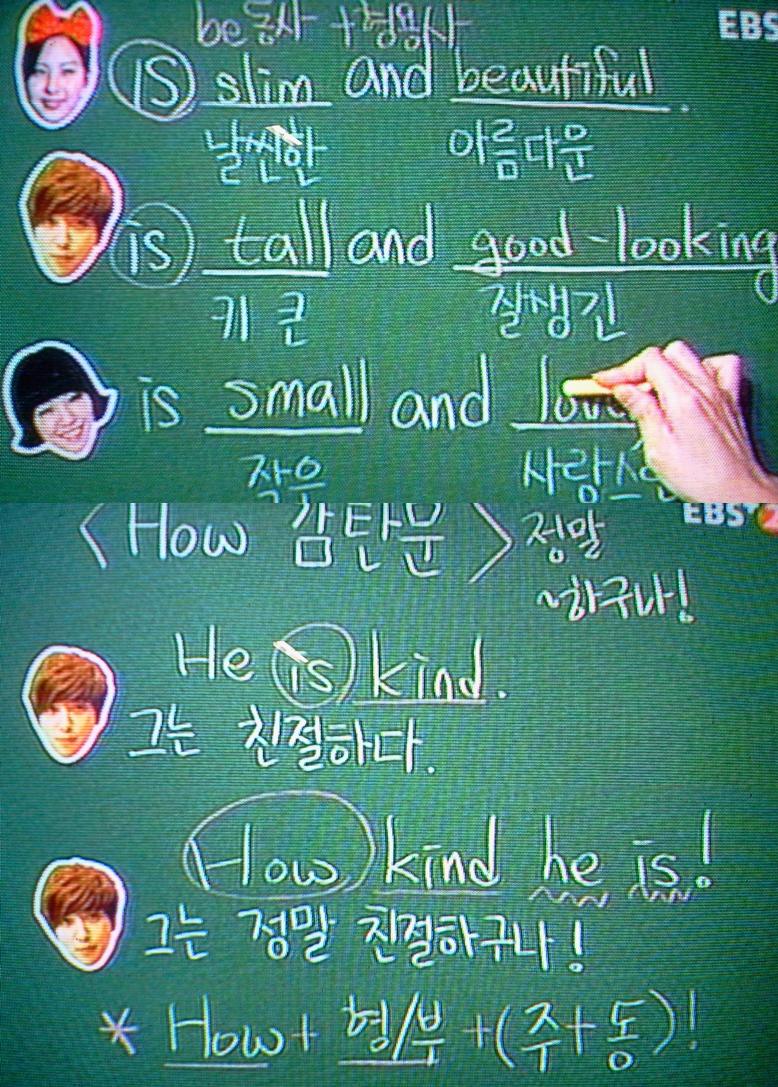 be동사 +형용사
EBS
is slim and beautiful.
날씬한 아름다운
is tall and good-looking
키 큰 잘생긴
is small and
작은
EBS 2
<How 감탄문> 정말
~하구나!
He is kind.
그는 친절하다.
How kind he is!
그는 정말 친절하구나!
* How + 형/부 + (주+동)!